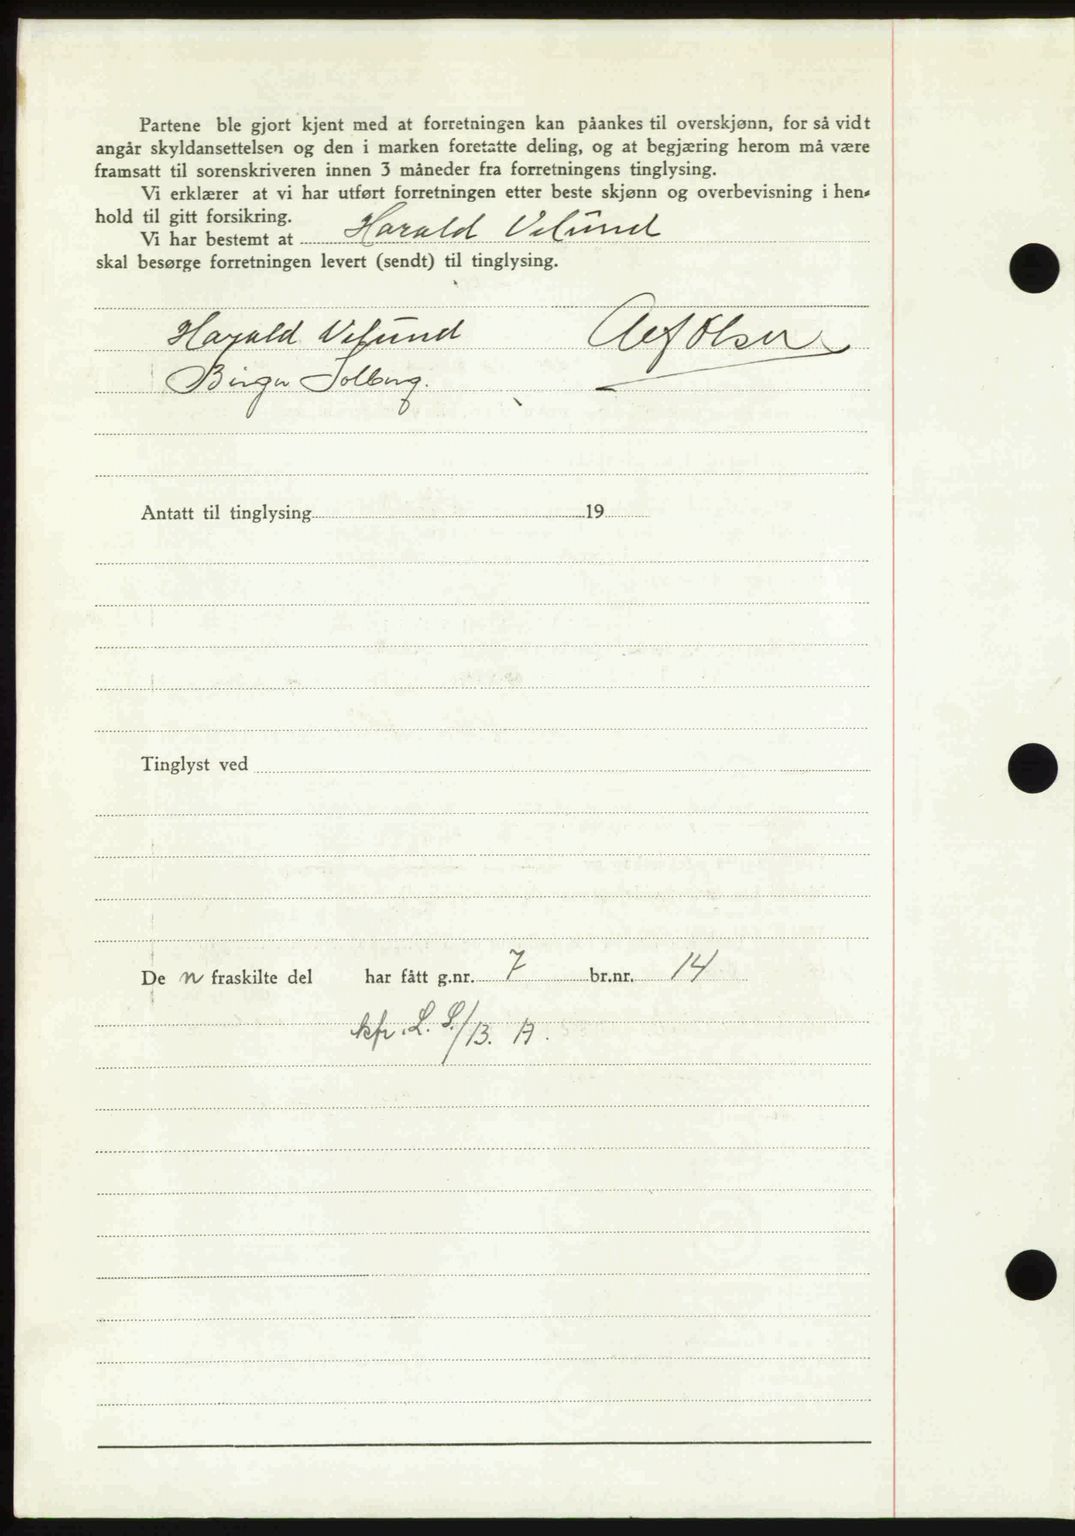 Partene ble gjort kjent med at forretningen kan påankes til overskjønn, for så vidt
angår skyldansettelsen og den i marken foretatte deling, og at begjæring herom må være
framsatt til sorenskriveren innen 3 måneder fra forretningens tinglysing.
Vi erklærer at vi har utført forretningen etter beste skjønn og overbevisning i hen-
hold til gitt forsikring.
Vi har bestemt at Harald Vilund
skal besørge forretningen levert (sendt) til tinglysing.
Harald Vilund Olsen
Birger Solberg.
Antatt til tinglysing 19
Tinglyst ved
De n fraskilte del har fått g.nr. 7 br.nr. 14
kfr. L. S./13. A.